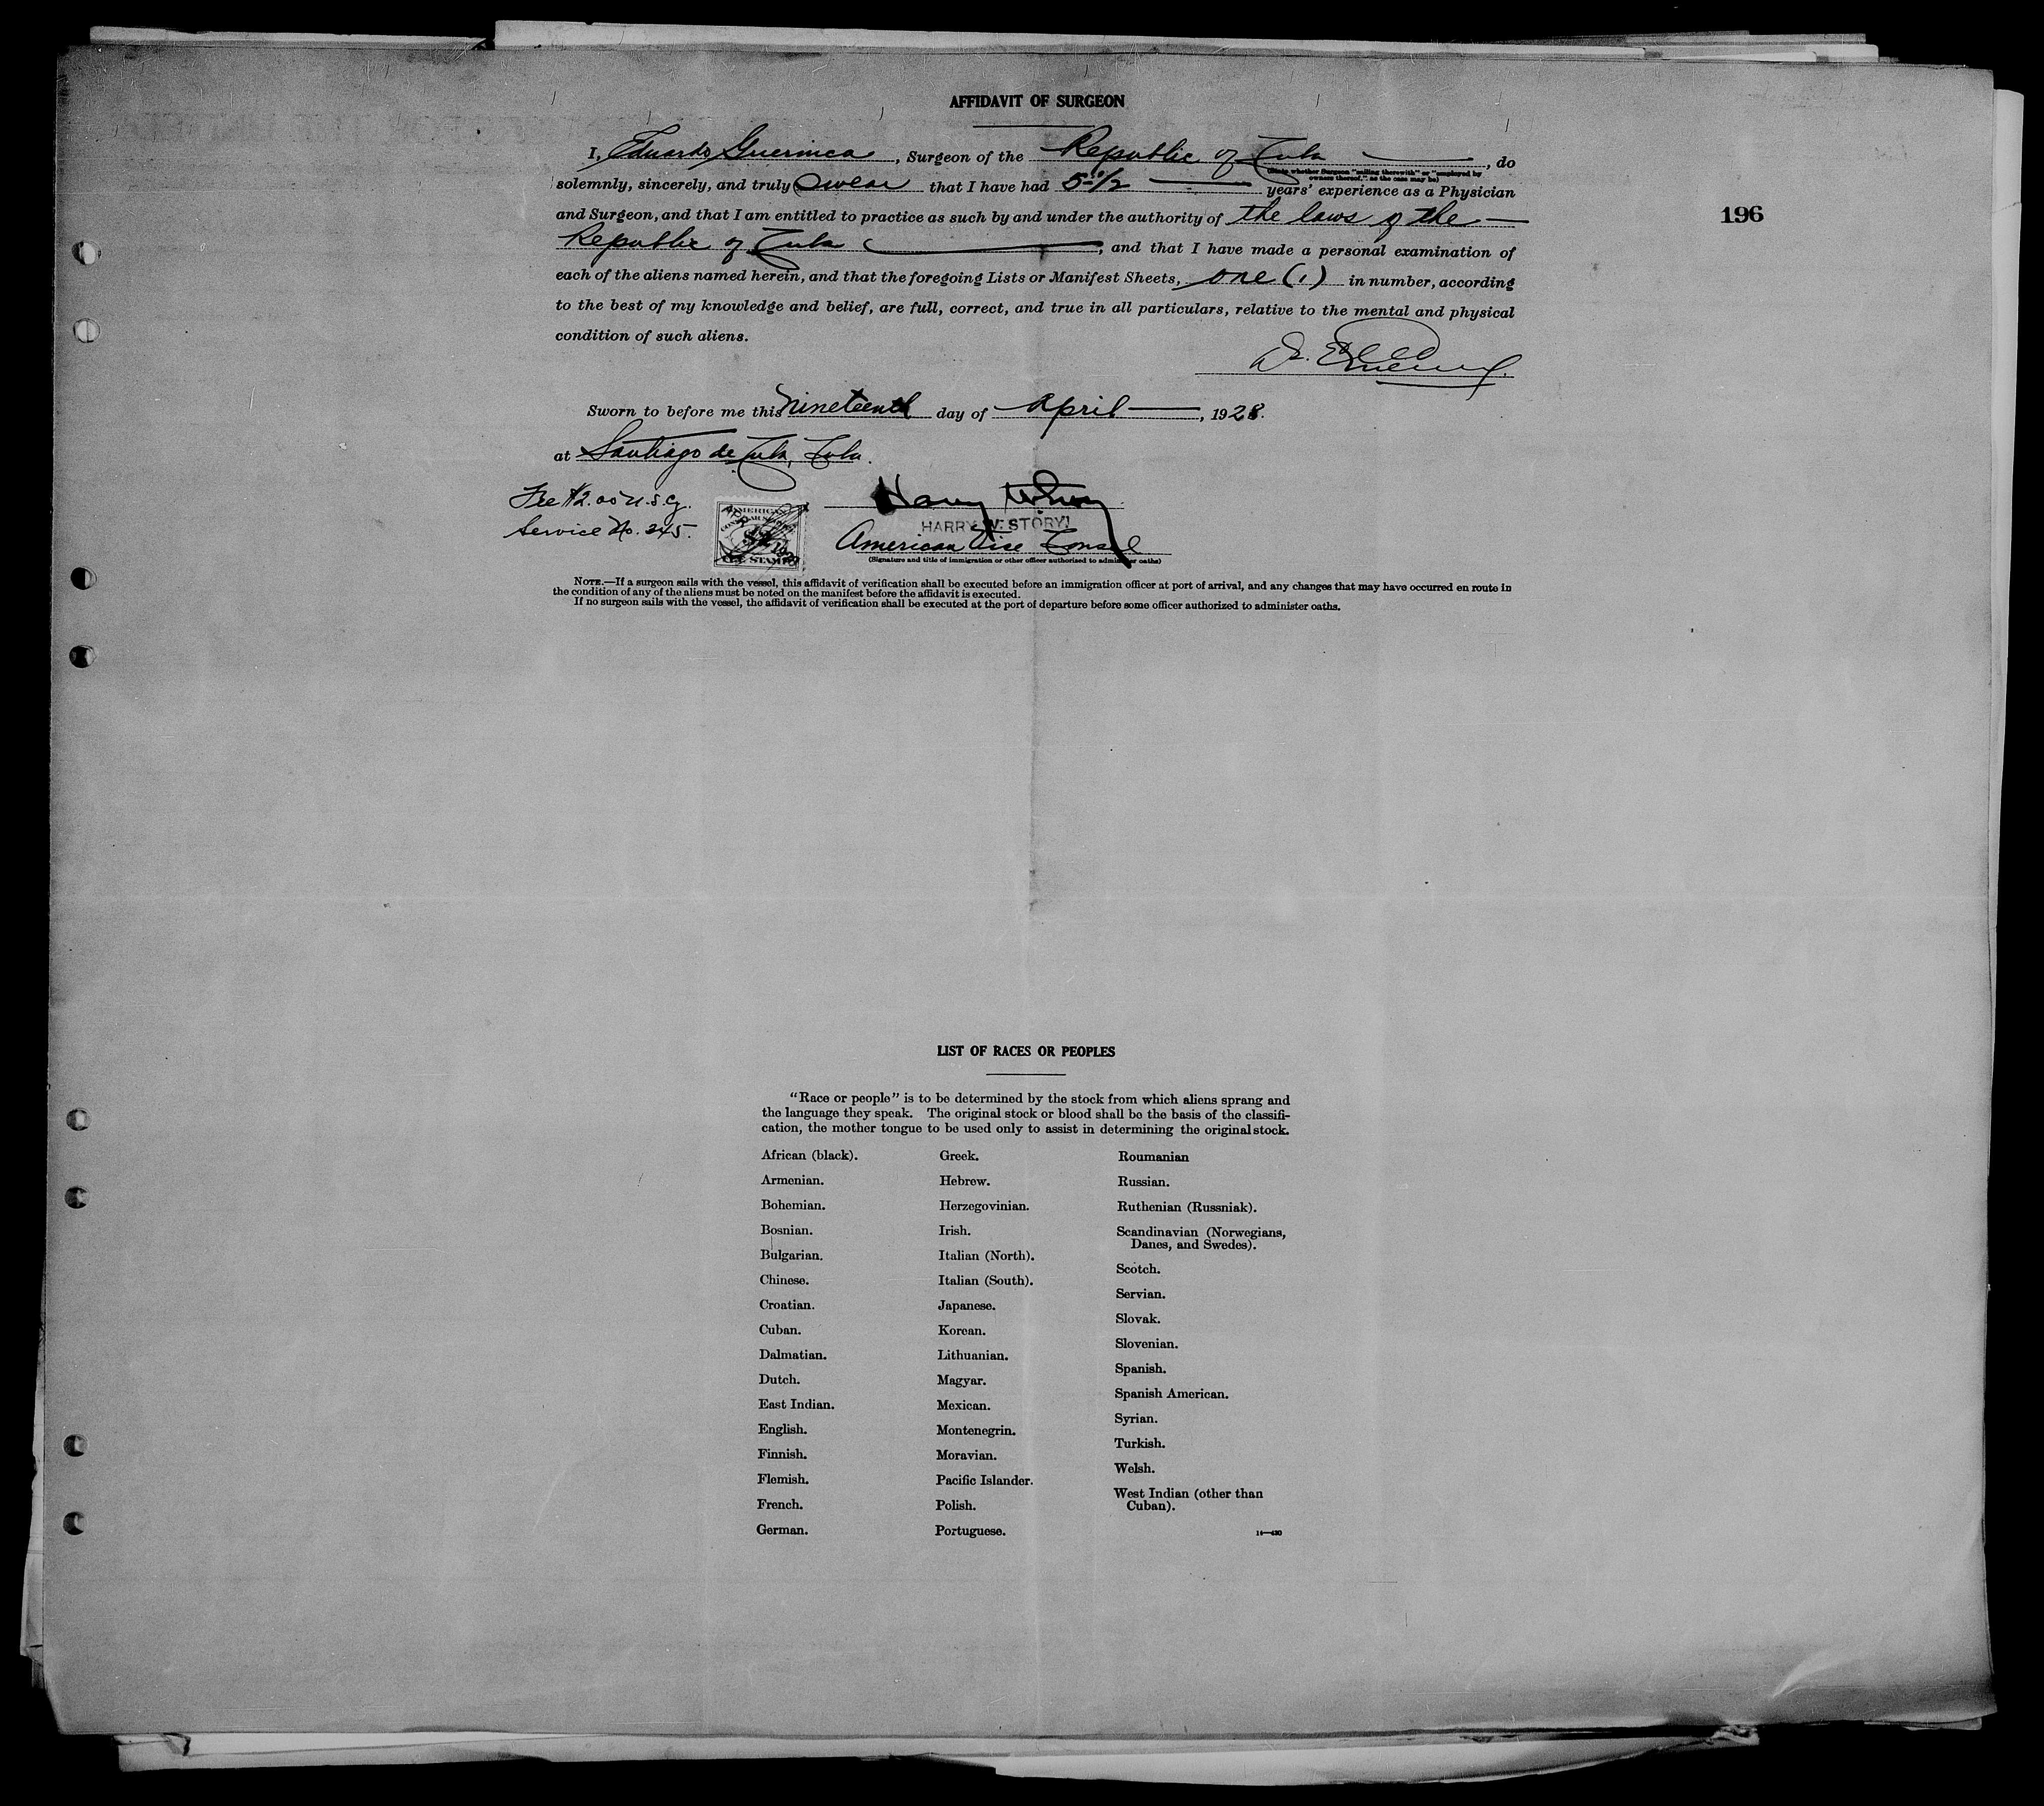 AFFIDAVIT OF SURGEON
I, Eduardo Guernica, Surgeon of the Republic of Cuba, do
(State whether Surgeon "sailing therewith" or "employed by owners thereof," as the case may be)
solemnly, sincerely, and truly swear that I have had 5-1/2 years' experience as a Physician
and Surgeon, and that I am entitled to practice as such by and under the authority of the laws of the
Republic of Cuba, and that I have made a personal examination of
each of the aliens named herein, and that the foregoing Lists or Manifest Sheets, one (1) in number, according
to the best of my knowledge and belief, are full, correct, and true in all particulars, relative to the mental and physical
condition of such aliens.
196
Sworn to before me this nineteenth day of April, 1928.
at Santiago de Cuba, Cuba.
Fee $2.00 U.S.Cy.
Service No. 345.
AMERICAN
FEE STAMP
HARRY W. STORY
American Vice Consul
(Signature and title of immigration or other officer authorized to administer oaths)
NOTE.—If a surgeon sails with the vessel, this affidavit of verification shall be executed before an immigration officer at port of arrival, and any changes that may have occurred en route in
the condition of any of the aliens must be noted on the manifest before the affidavit is executed.
If no surgeon sails with the vessel, the affidavit of verification shall be executed at the port of departure before some officer authorized to administer oaths.
LIST OF RACES OR PEOPLES
"Race or people" is to be determined by the stock from which aliens sprang and
the language they speak. The original stock or blood shall be the basis of the classifi-
cation, the mother tongue to be used only to assist in determining the original stock.
African (black).
Armenian.
Bohemian.
Bosnian.
Bulgarian.
Chinese.
Croatian.
Cuban.
Dalmatian.
Dutch.
East Indian.
English.
Finnish.
Flemish.
French.
German.
Greek.
Hebrew.
Herzegovinian.
Irish.
Italian (North).
Italian (South).
Japanese.
Korean.
Lithuanian.
Magyar.
Mexican.
Montenegrin.
Moravian.
Pacific Islander.
Polish.
Portuguese.
Roumanian
Russian.
Ruthenian (Russniak).
Scandinavian (Norwegians,
Danes, and Swedes).
Scotch.
Servian.
Slovak.
Slovenian.
Spanish.
Spanish American.
Syrian.
Turkish.
Welsh.
West Indian (other than
Cuban).